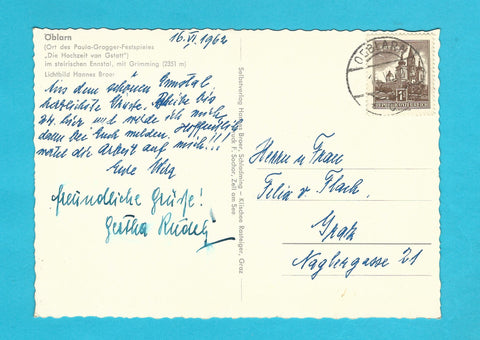 Öblarn
(Ort des Paula-Grogger-Festspieles
„Die Hochzeit von Gstatt")
im steirischen Ennstal, mit Grimming (2351 m)
Lichtbild Hannes Broer
16. VI. 1962
Aus dem schönen Ennstal
herzlichste Grüße. Bleibe bis
24. hier und melde ich mich
dann bei Euch melden. Hoffentlich
wartet die Arbeit auf mich!!!
Eure
freundliche Grüße!
Gertha
Selbstverlag Hannes Broer, Schladming - Klischee Rasteiger, Graz
Druck F. Sochor, Zell am See
Herrn u Frau
Felix v. Flack
Graz
Naglergasse 21